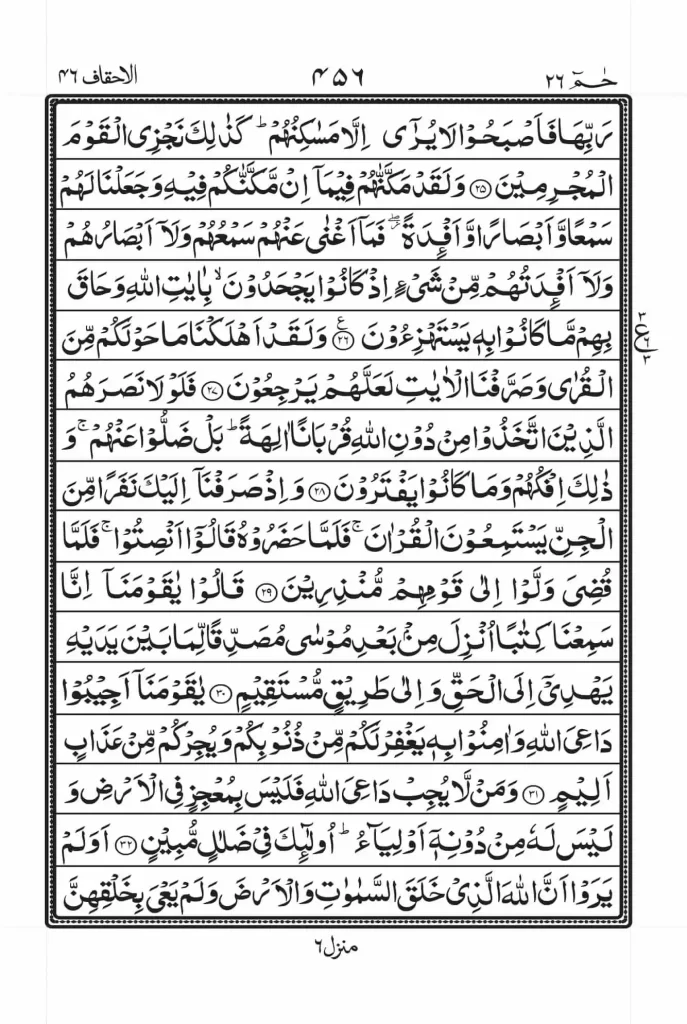 حٰمٓ ٢٦ ۴۵۶ الاحقاف ۴۶
رَبِّهَا فَاَصۡبَحُوۡا لَا يُرٰٓى اِلَّا مَسٰكِنُهُمۡ‌ؕ كَذٰلِكَ نَجۡزِى الۡقَوۡمَ
الۡمُجۡرِمِيۡنَ ﴿۲۵﴾ وَلَقَدۡ مَكَّنّٰهُمۡ فِيۡمَاۤ اِنۡ مَّكَّنّٰكُمۡ فِيۡهِ وَجَعَلۡنَا لَهُمۡ
سَمۡعًا وَّاَبۡصَارًا وَّاَفۡـِٕدَةً ‌ۖ فَمَاۤ اَغۡنٰى عَنۡهُمۡ سَمۡعُهُمۡ وَلَاۤ اَبۡصَارُهُمۡ
وَلَاۤ اَفۡـِٕدَتُهُمۡ مِّنۡ شَىۡءٍ اِذۡ كَانُوۡا يَجۡحَدُوۡنَۙ بِاٰيٰتِ اللّٰهِ وَحَاقَ
بِهِمۡ مَّا كَانُوۡا بِهٖ يَسۡتَهۡزِءُوۡنَ ﴿۲۶﴾ وَلَقَدۡ اَهۡلَكۡنَا مَا حَوۡلَـكُمۡ مِّنَ
الۡقُرٰى وَصَرَّفۡنَا الۡاٰيٰتِ لَعَلَّهُمۡ يَرۡجِعُوۡنَ ﴿۲۷﴾ فَلَوۡلَا نَصَرَهُمُ
الَّذِيۡنَ اتَّخَذُوۡا مِنۡ دُوۡنِ اللّٰهِ قُرۡبَانًا اٰلِهَةً ‌ؕ بَلۡ ضَلُّوۡا عَنۡهُمۡ‌ۚ وَ
ذٰلِكَ اِفۡكُهُمۡ وَمَا كَانُوۡا يَفۡتَرُوۡنَ ﴿۲۸﴾ وَاِذۡ صَرَفۡنَاۤ اِلَيۡكَ نَفَرًا مِّنَ
الۡجِنِّ يَسۡتَمِعُوۡنَ الۡقُرۡاٰنَ‌ۚ فَلَمَّا حَضَرُوۡهُ قَالُوۡۤا اَنۡصِتُوۡا‌ۚ فَلَمَّا
قُضِىَ وَلَّوۡا اِلٰى قَوۡمِهِمۡ مُّنۡذِرِيۡنَ ﴿۲۹﴾ قَالُوۡا يٰقَوۡمَنَاۤ اِنَّا
سَمِعۡنَا كِتٰبًا اُنۡزِلَ مِنۡۢ بَعۡدِ مُوۡسٰى مُصَدِّقًا لِّمَا بَيۡنَ يَدَيۡهِ
يَهۡدِىۡۤ اِلَى الۡحَقِّ وَاِلٰى طَرِيۡقٍ مُّسۡتَقِيۡمٍ ﴿۳۰﴾ يٰقَوۡمَنَاۤ اَجِيۡبُوۡا
دَاعِىَ اللّٰهِ وَاٰمِنُوۡا بِهٖ يَغۡفِرۡ لَـكُمۡ مِّنۡ ذُنُوۡبِكُمۡ وَيُجِرۡكُمۡ مِّنۡ عَذَابٍ
اَ لِيۡمٍ ﴿۳۱﴾ وَمَنۡ لَّا يُجِبۡ دَاعِىَ اللّٰهِ فَلَيۡسَ بِمُعۡجِزٍ فِى الۡاَرۡضِ وَ
لَيۡسَ لَهٗ مِنۡ دُوۡنِهٖۤ اَوۡلِيَآءُ ‌ؕ اُولٰٓٮِٕكَ فِىۡ ضَلٰلٍ مُّبِيۡنٍ ﴿۳۲﴾ اَوَلَمۡ
يَرَوۡا اَنَّ اللّٰهَ الَّذِىۡ خَلَقَ السَّمٰوٰتِ وَالۡاَرۡضَ وَلَمۡ يَعۡىَ بِخَلۡقِهِنَّ
منزل ٦